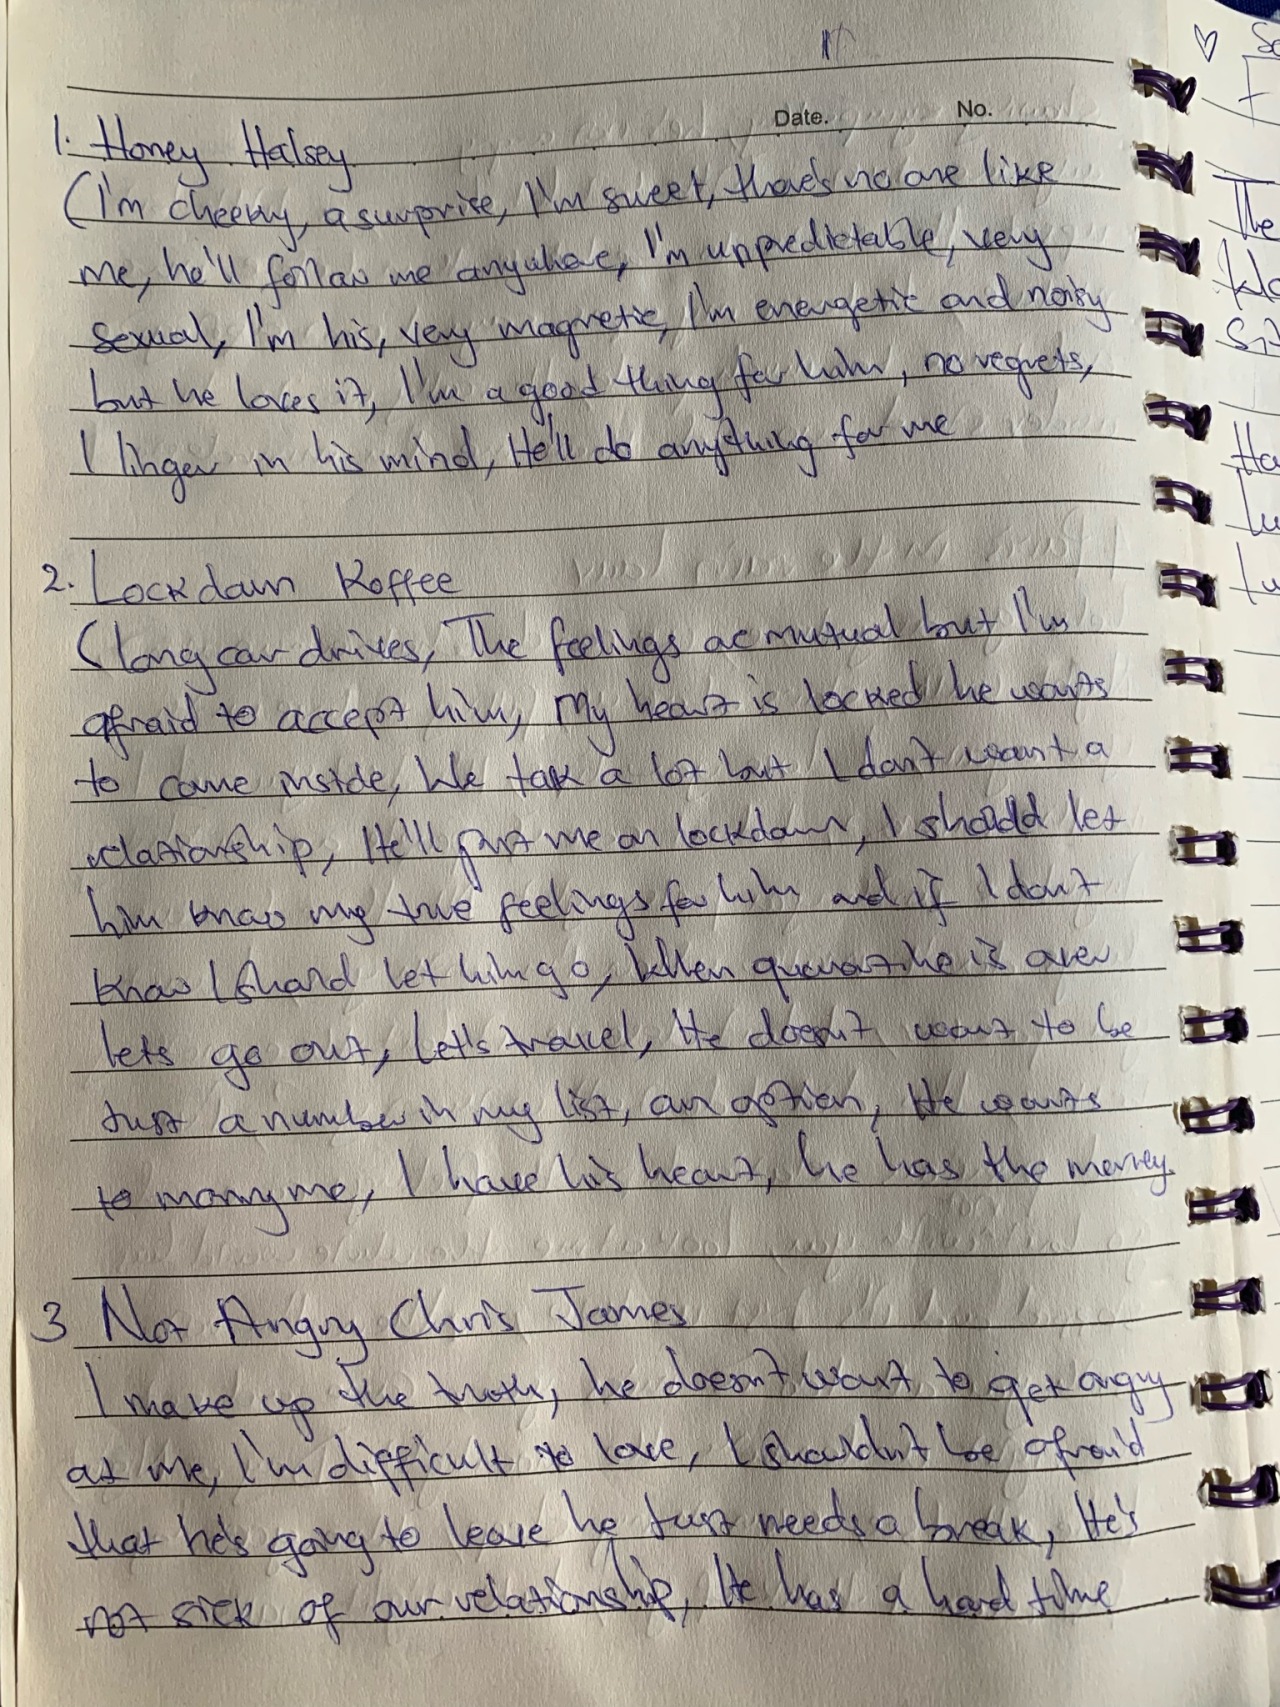 Date. No.
1. Honey Halsey
(I'm cheeky, a surprise, I'm sweet, there's no one like
me, he'll follow me anywhere, I'm unpredictable, very
sexual, I'm his, very magnetic, I'm energetic and noisy
but he loves it, I'm a good thing for him, no regrets,
I linger in his mind, He'll do anything for me
2. Lockdown Koffee
(long car drives, The feelings are mutual but I'm
afraid to accept him, My heart is locked he wants
to come inside, We talk a lot but I don't want a
relationship, He'll put me on lockdown, I should let
him know my true feelings for him and if I don't
know I should let him go, When quarantine is over
lets go out, Let's travel, He doesn't want to be
just a number in my list, an option, He wants
to marry me, I have his heart, he has the money
3 Not Angry Chris James
I make up the truth, he doesn't want to get angry
at me, I'm difficult to love, I shouldn't be afraid
that he's going to leave he just needs a break, He's
not sick of our relationship, He has a hard time
The